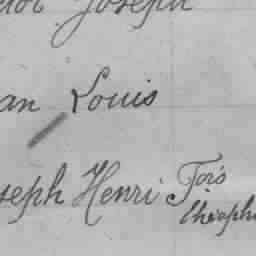 Joseph
an Louis
seph Henri Frs
Theophi